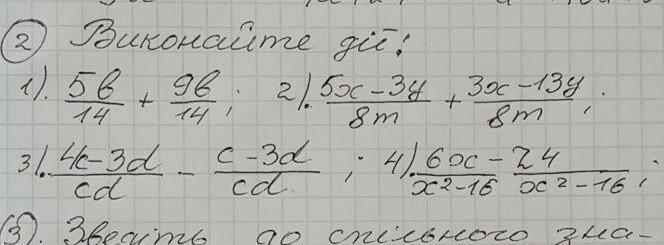 ② Виконайте дії:
1). 5b/14 + 9b/14; 2). 5x-3y/8m + 3x-13y/8m;
3). 4c-3d/cd - c-3d/cd; 4). 6x/x²-16 - 24/x²-16;
③. Зведіть до спільного зна-